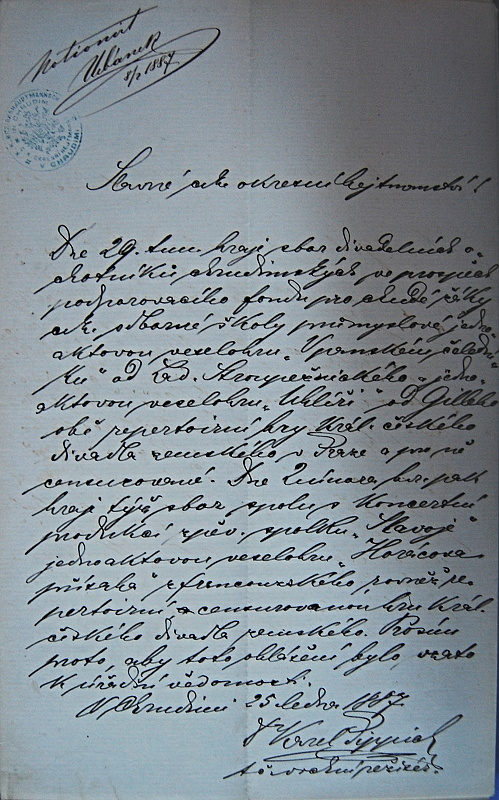 Notionirt
Urbanek
8/2 1887
CHRUDIM
Slavné c.k. okresní hejtmanství!
Dne 29. t.m. hraje sbor divadelních o-
chotníků chrudimských ve prospěch
podporovacího fondu pro chudé žáky
c.k. odborné školy průmyslové jedno-
aktovou veselohru „V panském čeled-
níku“ od Lad. Stroupežnického a jedno-
aktovou veselohru „Uhlíři“ od Gilleho
obě repertoirní hry král. českého
divadla zemského v Praze a pro ně
censurované. Dne 2. února hr. pak
hraje týž sbor spolu s koncertní
produkcí zpěv. spolku „Slavoj“
jednoaktovou veselohru „Horácova
přísaha“ z francouzského, rovněž re-
pertoirní a censurovanou hru král.
českého divadla zemského. Prosím
proto, aby toto ohlášení bylo vzato
k úřední vědomosti.
V Chrudimi 25 ledna 1887
Karel Pippich